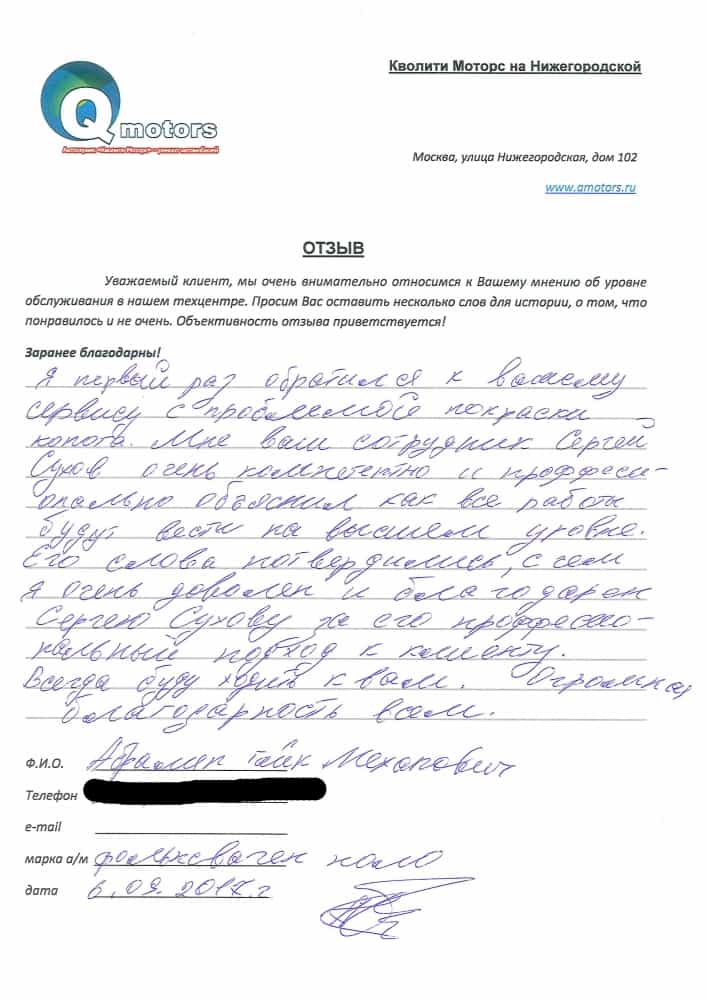 Кволити Моторс на Нижегородской
Q motors
Автосервис «Кволити Моторс» — ремонт автомобилей
Москва, улица Нижегородская, дом 102
www.qmotors.ru
ОТЗЫВ
Уважаемый клиент, мы очень внимательно относимся к Вашему мнению об уровне
обслуживания в нашем техцентре. Просим Вас оставить несколько слов для истории, о том, что
понравилось и не очень. Объективность отзыва приветствуется!
Заранее благодарны!
Я первый раз обратился к вашему
сервису с проблемой покраски
копота. Мне ваш сотрудник Сергей
Сухов очень компетентно и проффеси-
онально объяснил как все работы
будут вести на высшем уровне.
Его слова потвердились, с чем
я очень доволен и благодарен
Сергею Сухову за его проффессио-
нальный подход к клиенту.
Всегда буду ходить к вам. Огромная
благодарность всем.
Ф.И.О. Гайк
Телефон
e-mail
марка а/м фольксваген поло
дата 6.09.2017.г